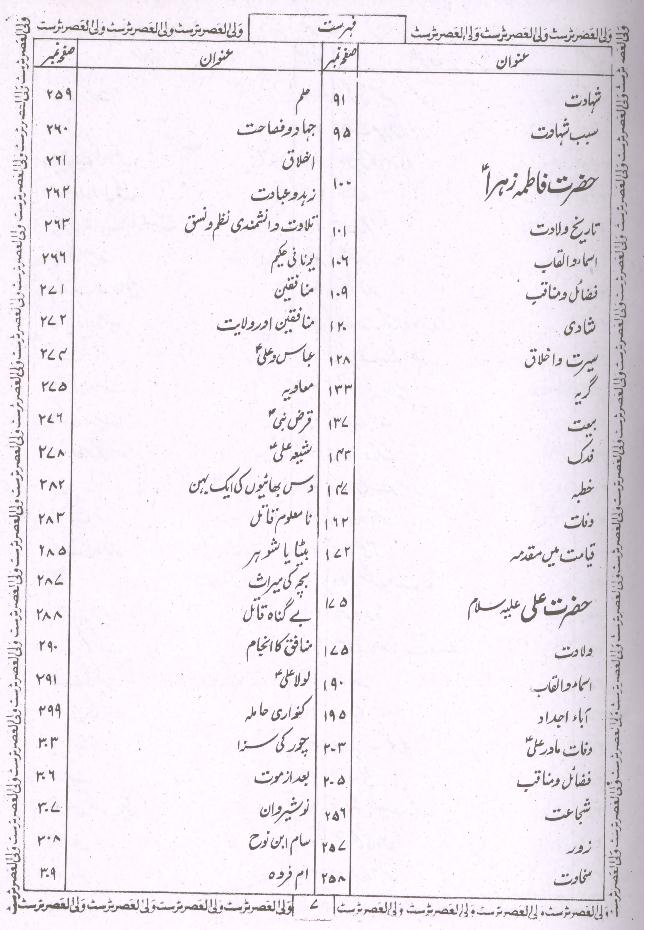 فہرست
عنوان صفحہ نمبر
شہادت ۹۱
سبب شہادت ۹۵
حضرت فاطمہ زہراؑ ۱۰۰
تاریخ ولادت ۱۰۱
اسماء والقاب ۱۰۶
فضائل ومناقب ۱۰۹
شادی ۱۲۰
سیرت واخلاق ۱۲۸
گریہ ۱۳۳
بیعت ۱۳۷
فدک ۱۴۳
خطبہ ۱۴۷
وفات ۱۶۲
قیامت میں مقدمہ ۱۷۲
حضرت علی علیہ سلام ۱۷۵
ولادت ۱۷۵
اسماء والقاب ۱۹۰
آباء اجداد ۱۹۵
وفات مادر علیؑ ۲۰۳
فضائل ومناقب ۲۰۵
شجاعت ۲۵۶
زور ۲۵۷
سخاوت ۲۵۸
عنوان صفحہ نمبر
علم ۲۵۹
جہاد و فصاحت ۲۶۰
اخلاق ۲۶۱
زہد وعبادت ۲۶۲
تلاوت دانشمندی نظم ونسق ۲۶۳
یونانی حکیم ۲۶۶
منافقین ۲۷۱
منافقین اور ولایت ۲۷۲
عباس وعلیؑ ۲۷۴
معاویہ ۲۷۵
قرض نبیؐ ۲۷۶
شیعہ علیؑ ۲۷۸
دس بھائیوں کی ایک بہن ۲۸۲
نا معلوم قاتل ۲۸۳
بیٹا یا شوہر ۲۸۵
بچہ کی میراث ۲۸۷
بے گناہ قاتل ۲۸۸
منافق کا انجام ۲۹۰
لولا علیؑ ۲۹۱
کنواری حاملہ ۲۹۹
چور کی سزا ۳۰۳
بعد از موت ۳۰۶
نوشیروان ۳۰۷
سام ابن نوح ۳۰۸
ام فروہ ۳۰۹
ولی العصر ٹرسٹ ولی العصر ٹرسٹ ولی العصر ٹرسٹ ۷ ولی العصر ٹرسٹ ولی العصر ٹرسٹ ولی العصر ٹرسٹ ولی العصر ٹرسٹ